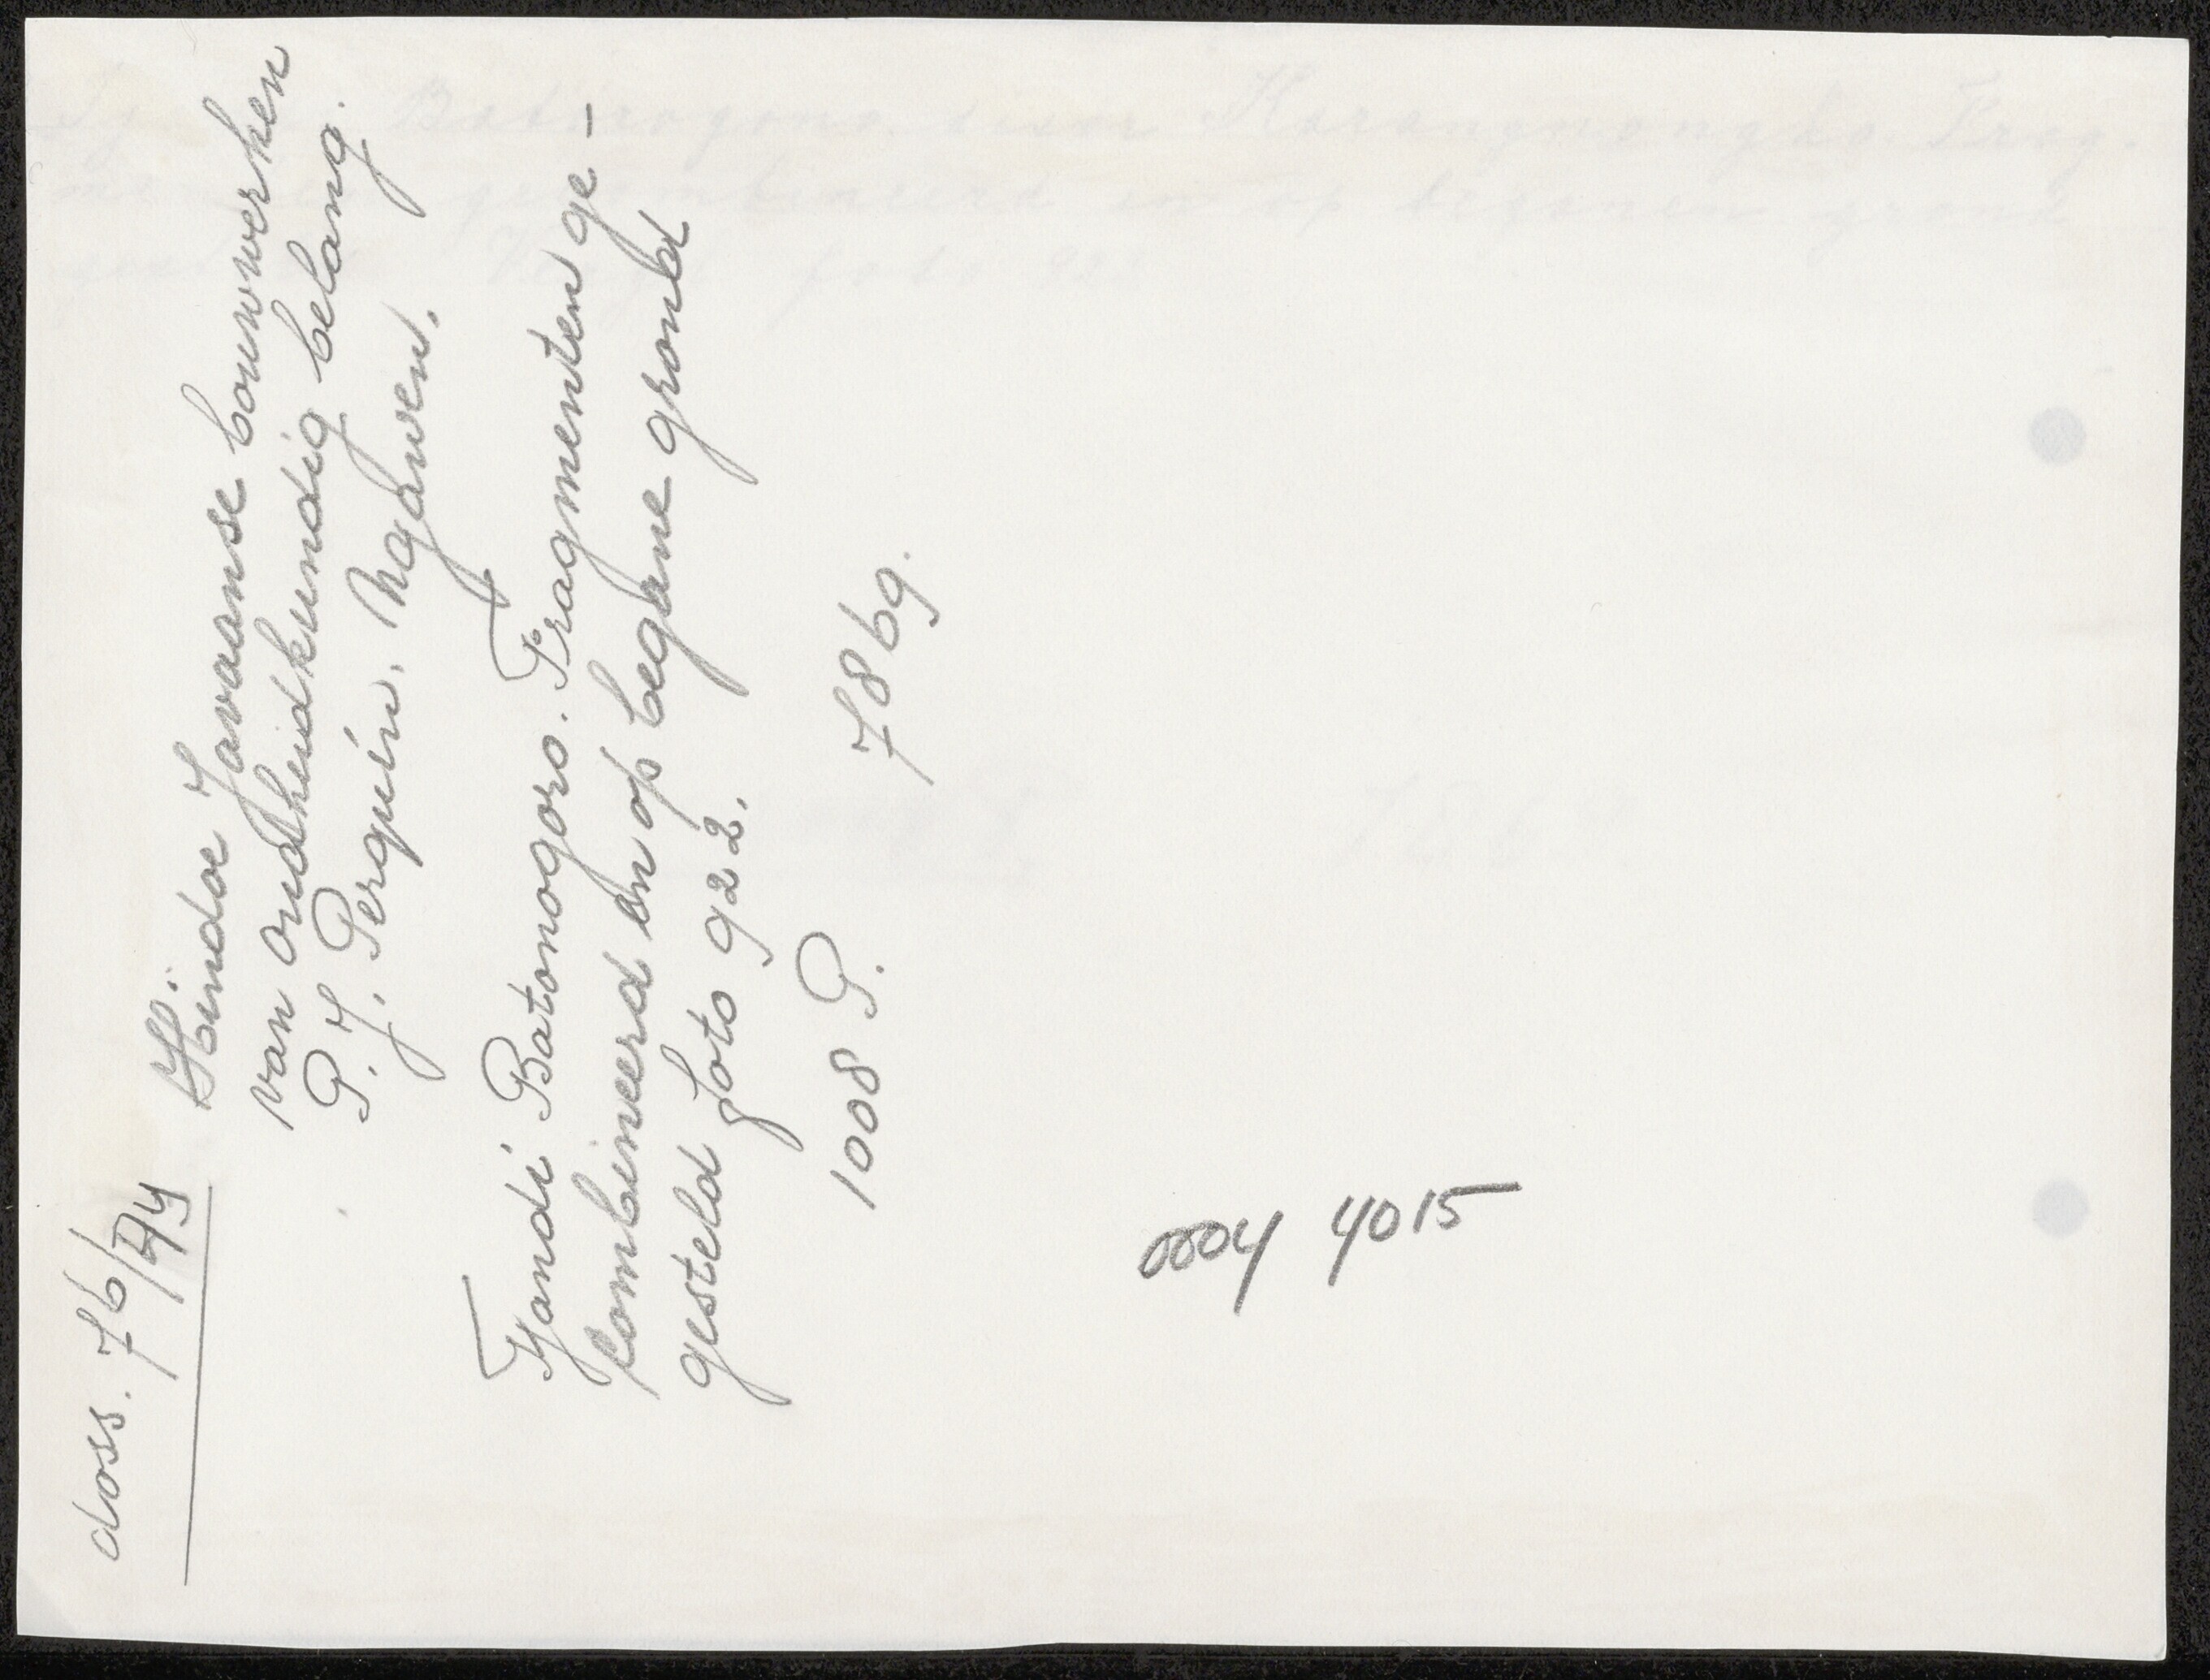 doss. 76/A4
Hindoe Javaanse bouwwerken
van oudheidkundig belang.
P. J. Perquin. Ngawen.
Tjandi Batonogoro. Fragmenten ge-
combineerd en op begane grond
gesteld foto 922.
1008 P. 7869.
4015